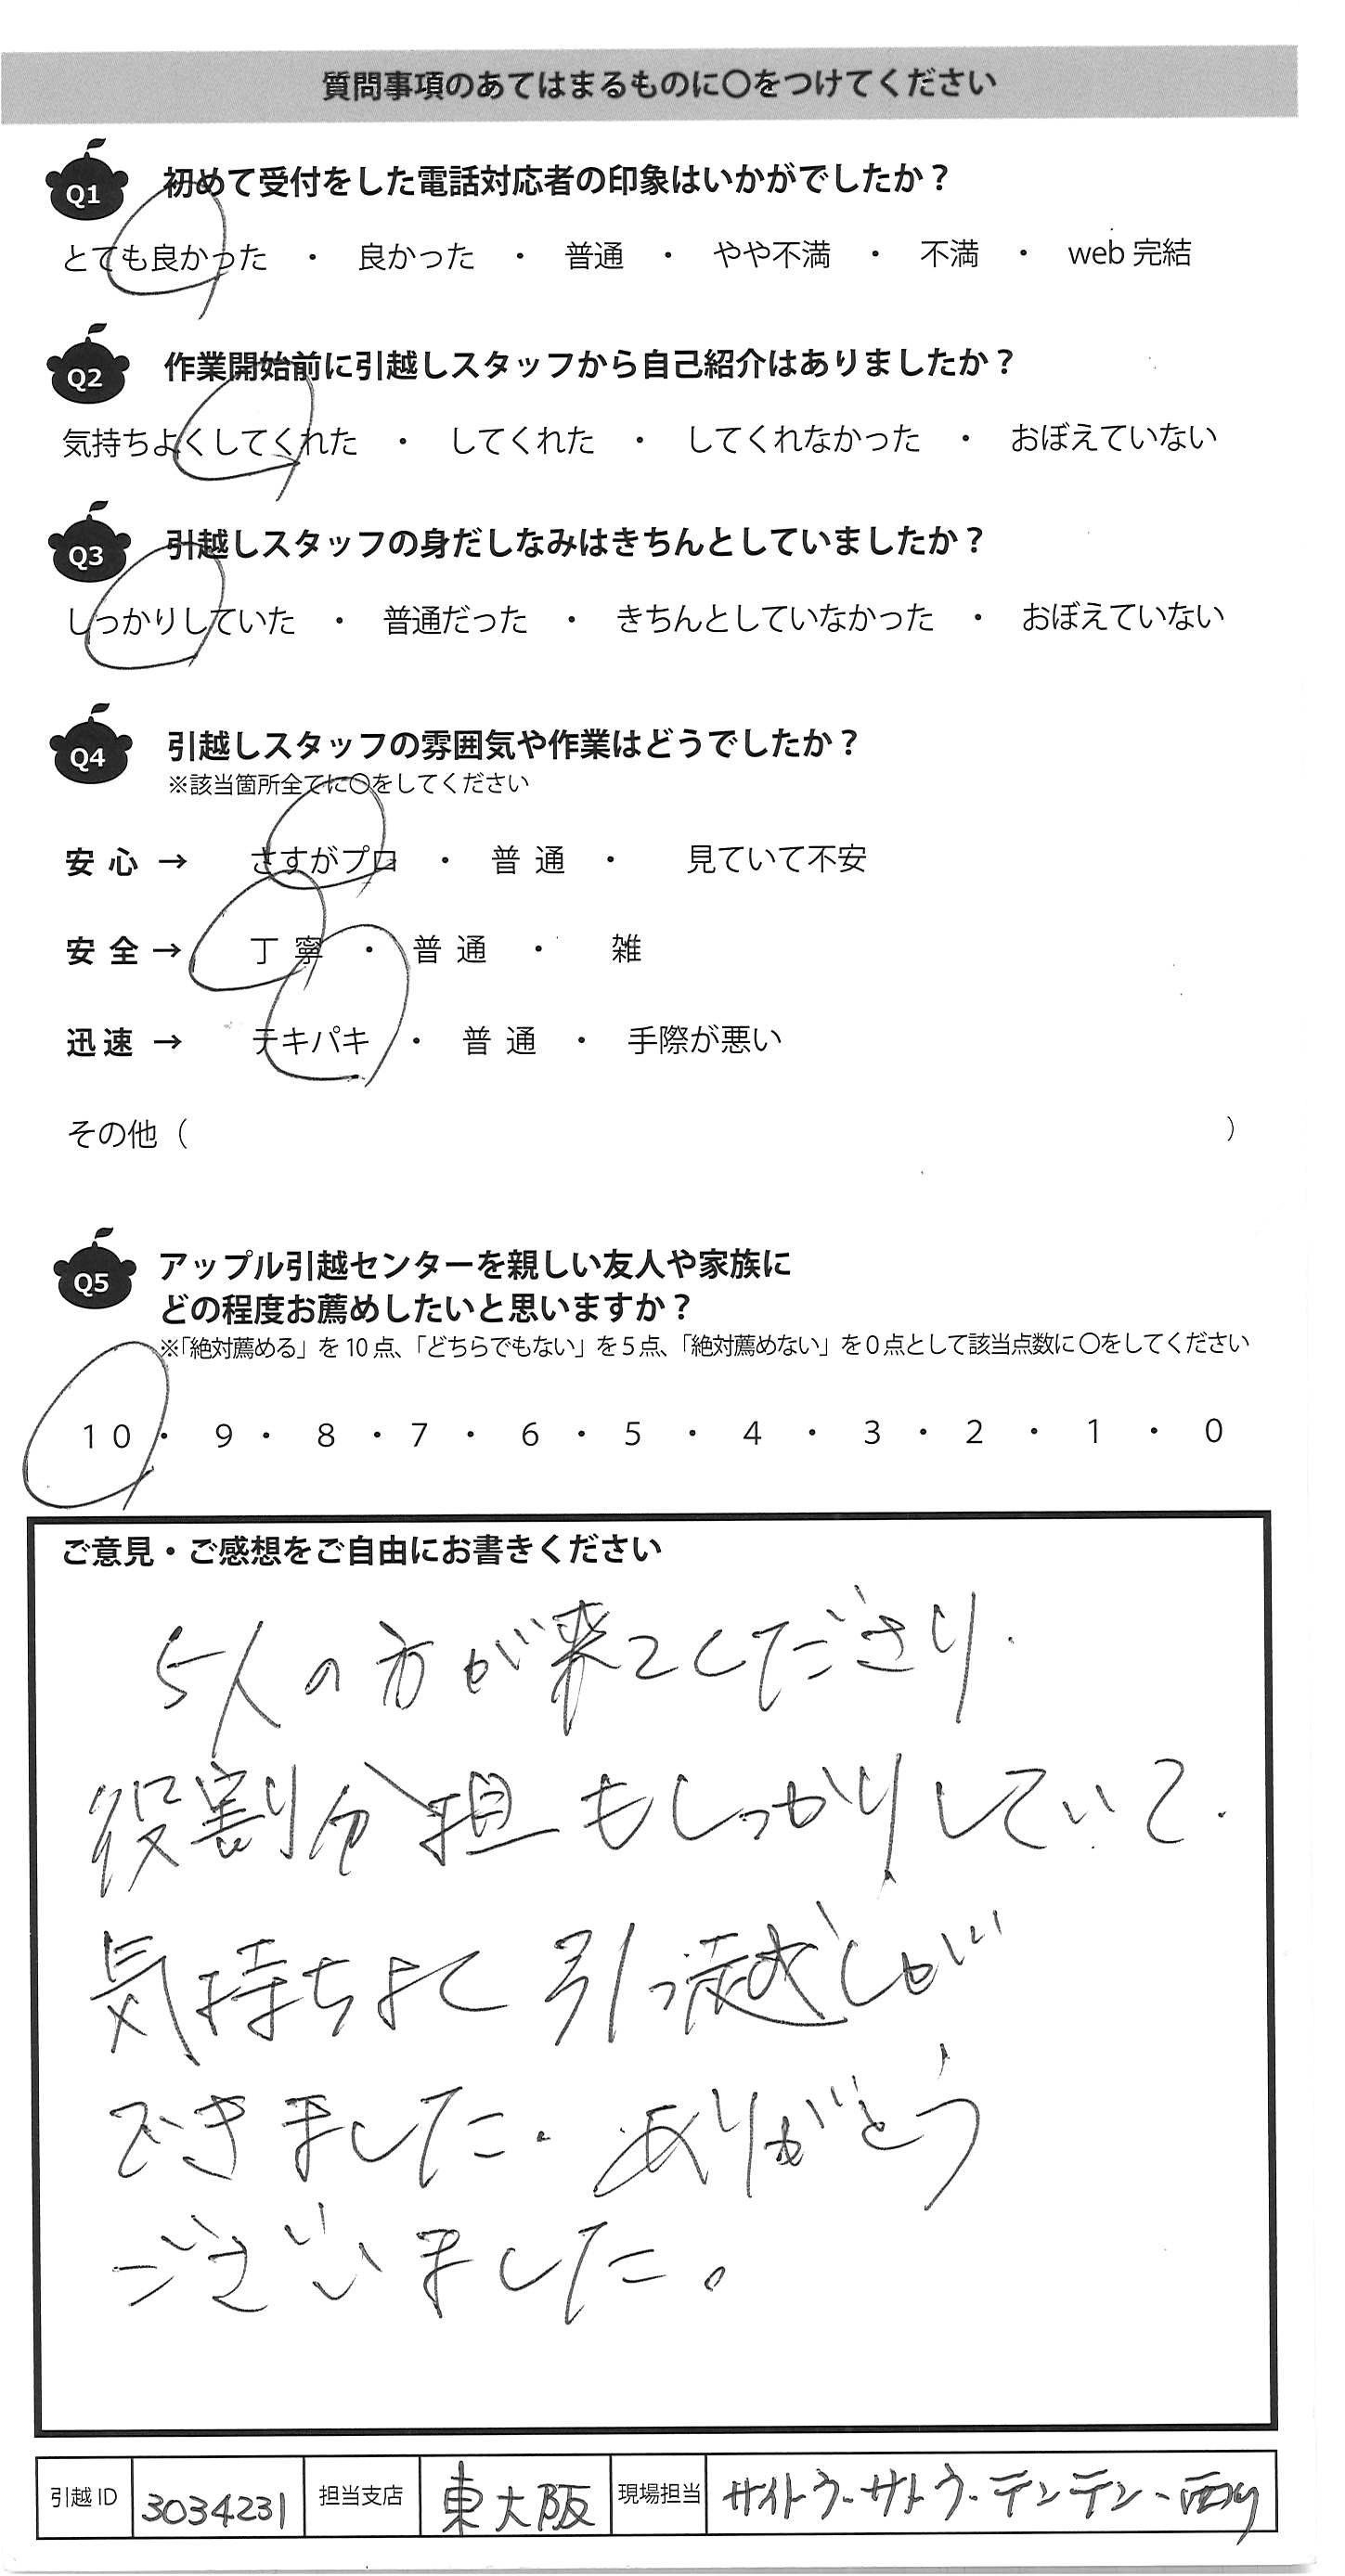 質問事項のあてはまるものに〇をつけてください
Q1 初めて受付をした電話対応者の印象はいかがでしたか？
とても良かった ・ 良かった ・ 普通 ・ やや不満 ・ 不満 ・ web 完結
Q2 作業開始前に引越しスタッフから自己紹介はありましたか？
気持ちよくしてくれた ・ してくれた ・ してくれなかった ・ おぼえていない
Q3 引越しスタッフの身だしなみはきちんとしていましたか？
しっかりしていた ・ 普通だった ・ きちんとしていなかった ・ おぼえていない
Q4 引越しスタッフの雰囲気や作業はどうでしたか？
※該当箇所全てに〇をしてください
安心 → さすがプロ ・ 普通 ・ 見ていて不安
安全 → 丁寧 ・ 普通 ・ 雑
迅速 → テキパキ ・ 普通 ・ 手際が悪い
その他（ ）
Q5 アップル引越センターを親しい友人や家族に
どの程度お薦めしたいと思いますか？
※「絶対薦める」を 10 点、「どちらでもない」を 5 点、「絶対薦めない」を 0 点として該当点数に〇をしてください
10 ・ 9 ・ 8 ・ 7 ・ 6 ・ 5 ・ 4 ・ 3 ・ 2 ・ 1 ・ 0
ご意見・ご感想をご自由にお書きください
5人の方が来てくださり、
役割分担もしっかりしていて、
気持ちよく引っ越しが
できました。ありがとう
ございました。
引越 ID 3034231 担当支店 東大阪 現場担当 サイトウ・サトウ・テンテン・